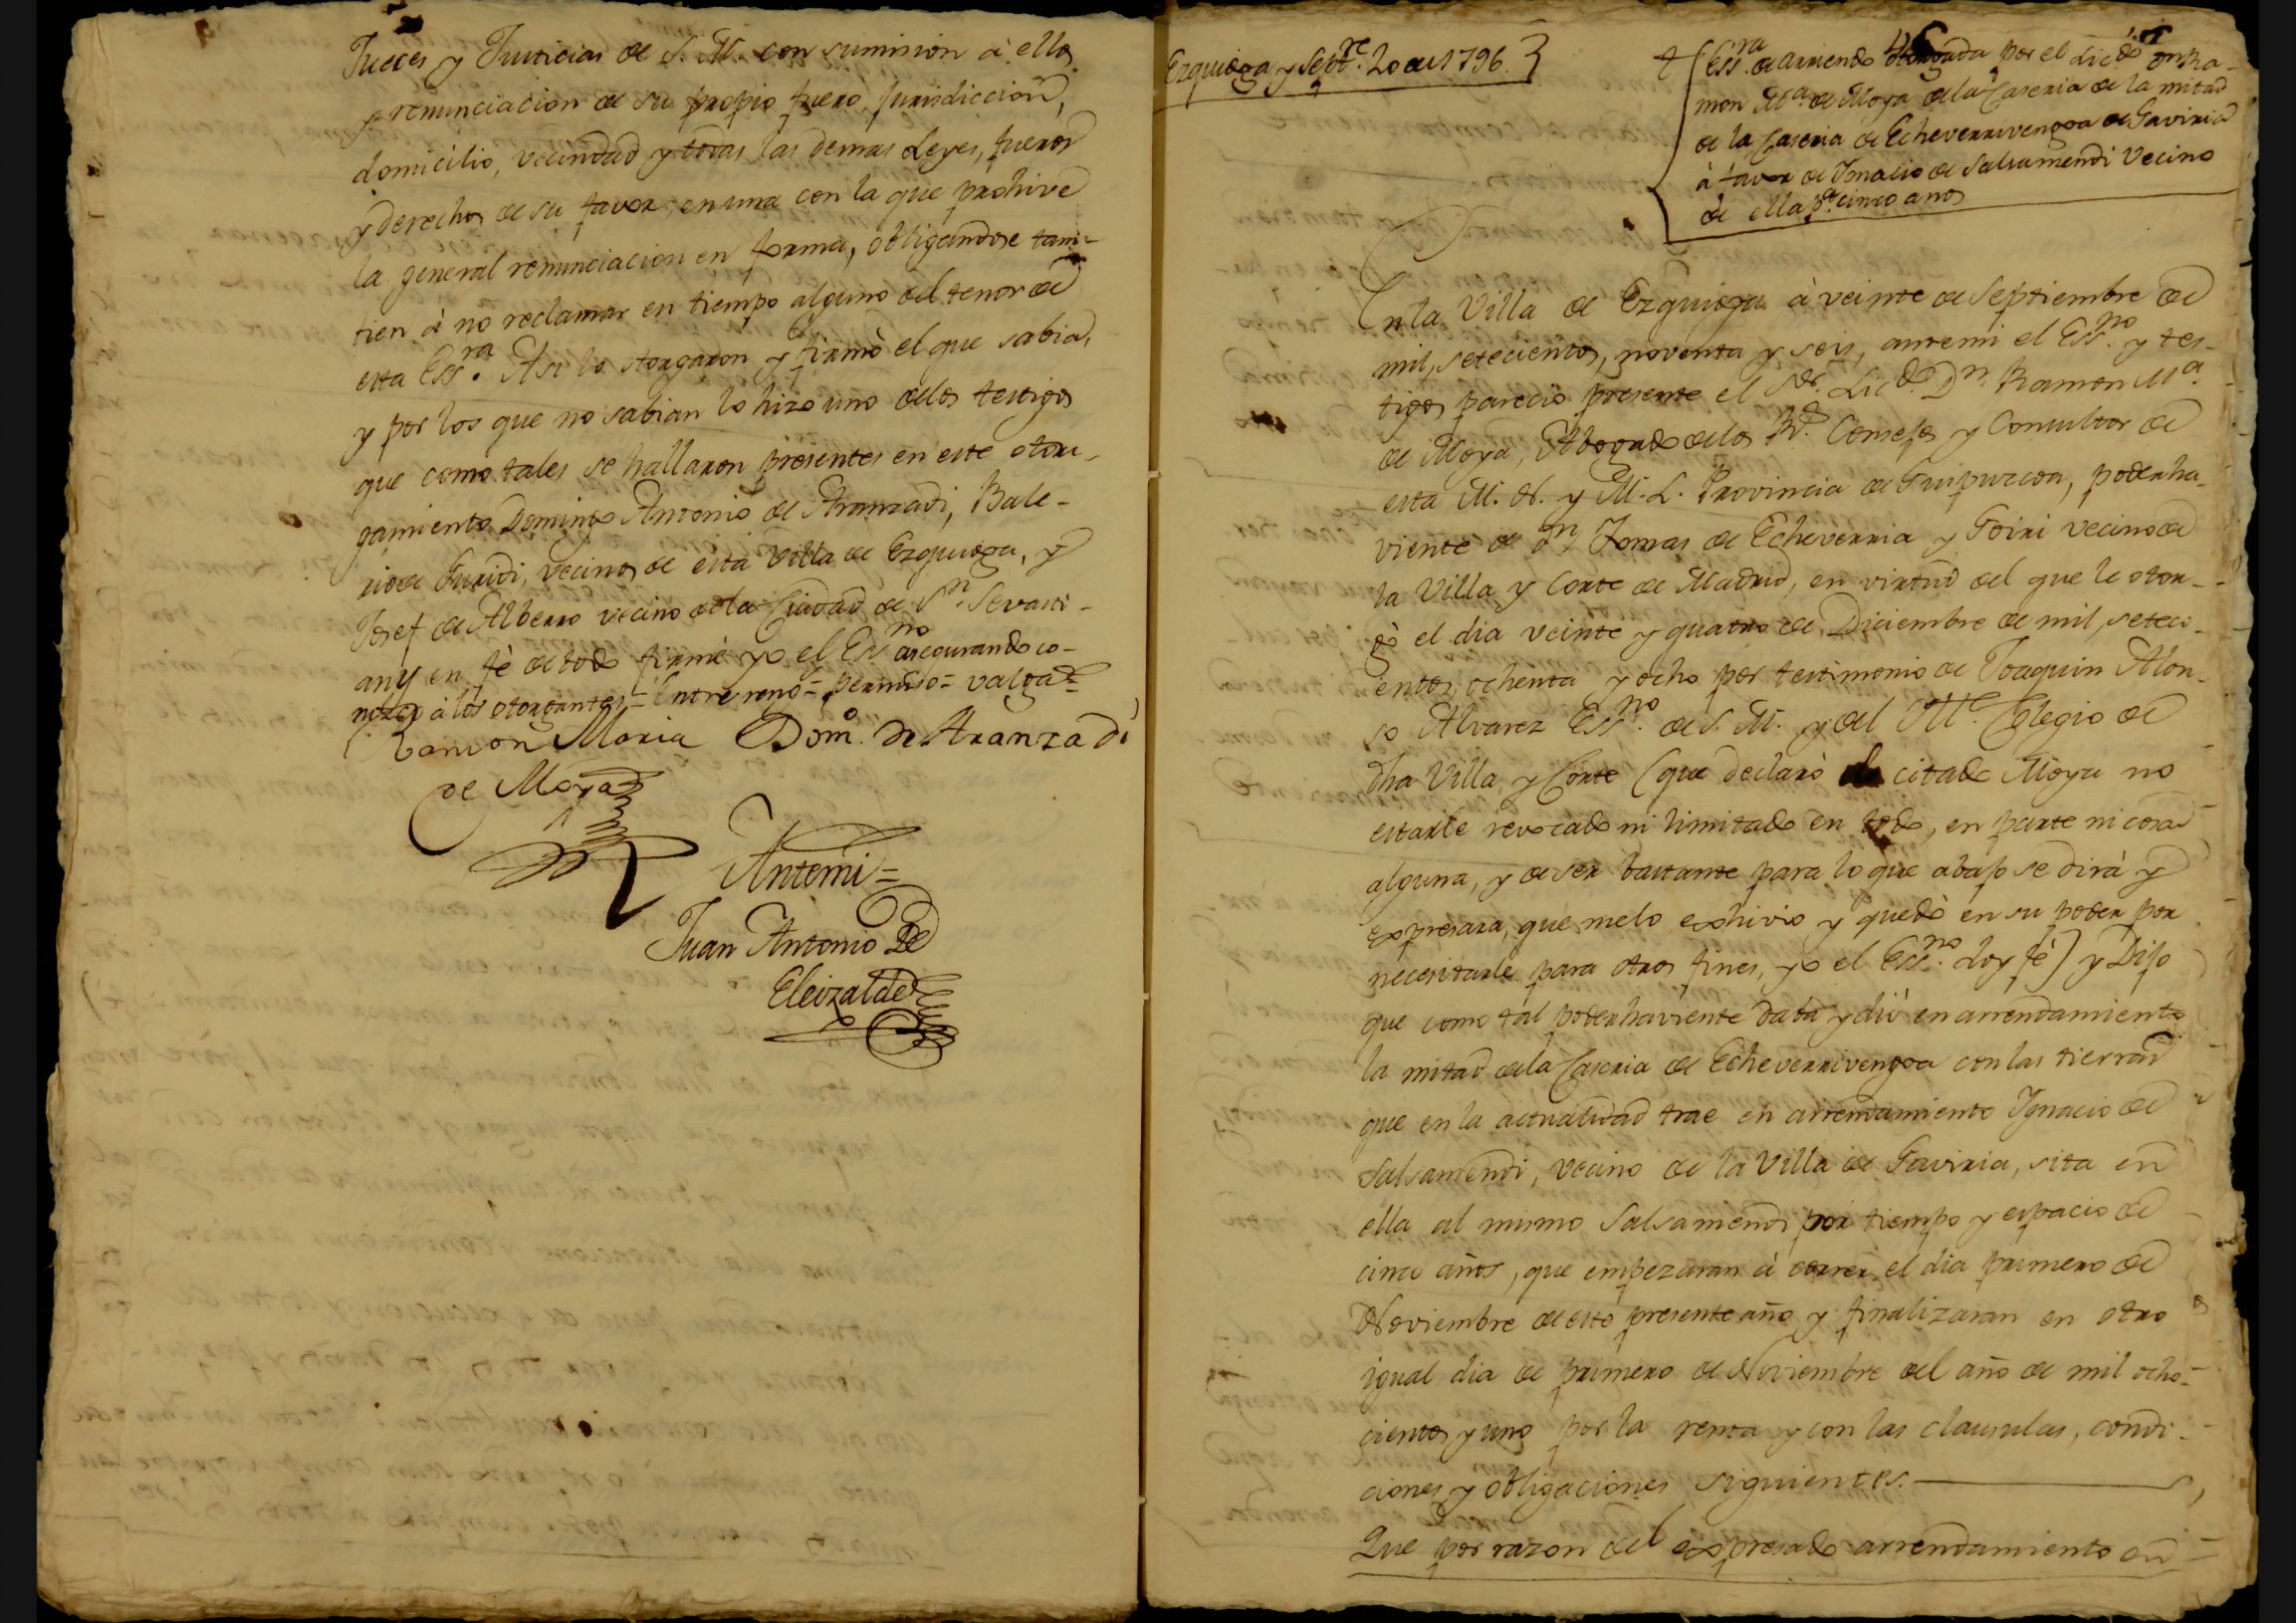 Jueces y Justicias de S. M. con sumision à ellos
y renunciacion de su propio fuero, jurisdiccion,
domicilio, vecindad y todas las demas Leyes, fueros
y derechos de su favor, en una con la que prohive
la general renunciacion en forma, obligandose tam-
tien à no reclamar en tiempo alguno del tenor de
esta Essra. Asi lo otorgaron y firmò el que sabia,
y por los que no sabian lo hizo uno delos testigos
que como tales se hallaron presentes en este otor-
gamiento Domingo Antonio de Aranzadi, Bale-
rio de Furidi, vecinos de esta Villa de Ezquioga, y
Josef de Alberro vecino dela Ciudad de Sn. Sevasti-
an, y en fè de todo firmè yo el Essno asegurando co-
nozco à los otorgantes = Entre reng.s = permiso = valga =
Ramon Maria Domo. de Aranzadi
de Moya
Antemi =
Juan Antonio De
Eleizalde
Ezquioga y Septre. 20 de 1796.
Essra. de arriendo otorgada por el Licdo. Dn Ra-
mon Ma. de Moya dela Caseria de la mitad
de la Caseria de Echeverrivengoa de Gaviria
à favor de Ignacio de Salsamendi Vecino
de ella pr. cinco años
En la Villa de Ezquioga à veinte de Septiembre de
mil, setecientos, noventa y seis, antemi el Essno. y tes-
tigos pareciò presente el Sor. Licdo. Dn. Ramon Ma.
de Moya, Abogado delos Rs. Consejos y Consultor de
esta M. N. y M. L. Provincia de Guipuzcoa, poderha-
viente de Dn. Tomas de Echeverria y Goiri vecino de
la Villa y Corte de Madrid, en virtud del que le otor-
gò el dia veinte y quatro de Diciembre de mil, seteci-
entos, ochenta y ocho por testimonio de Joaquin Alon-
so Alvarez Essno. de S. M. y del Ille. Colegio de
dha Villa y Corte (que declarò el citado Moya no
estarle revocado ni limitado en todo, en parte ni cosa
alguna, y de ser bastante para lo que abajo se dirà y
expresara, que melo exhivio y quedò en su poder por
necesitarle para otros fines, yo el Essno. doy fè) y Dijo
que como tal poderhaviente daba y diò en arrendamiento
la mitad dela Caseria de Echeverrivengoa con las tierras
que en la actualidad trae en arrendamiento Ignacio de
Salsamendi, vecino de la Villa de Gaviria, sita en
ella al mismo Salsamendi por tiempo y espacio de
cinco años, que empezaran à correr el dia primero de
Noviembre de este presente año y finalizaran en otro
igual dia de primero de Noviembre del año de mil ocho-
cientos y uno por la renta y con las clausulas, condi-
ciones y obligaciones siguientes.
Que por razon del expresado arrendamiento en